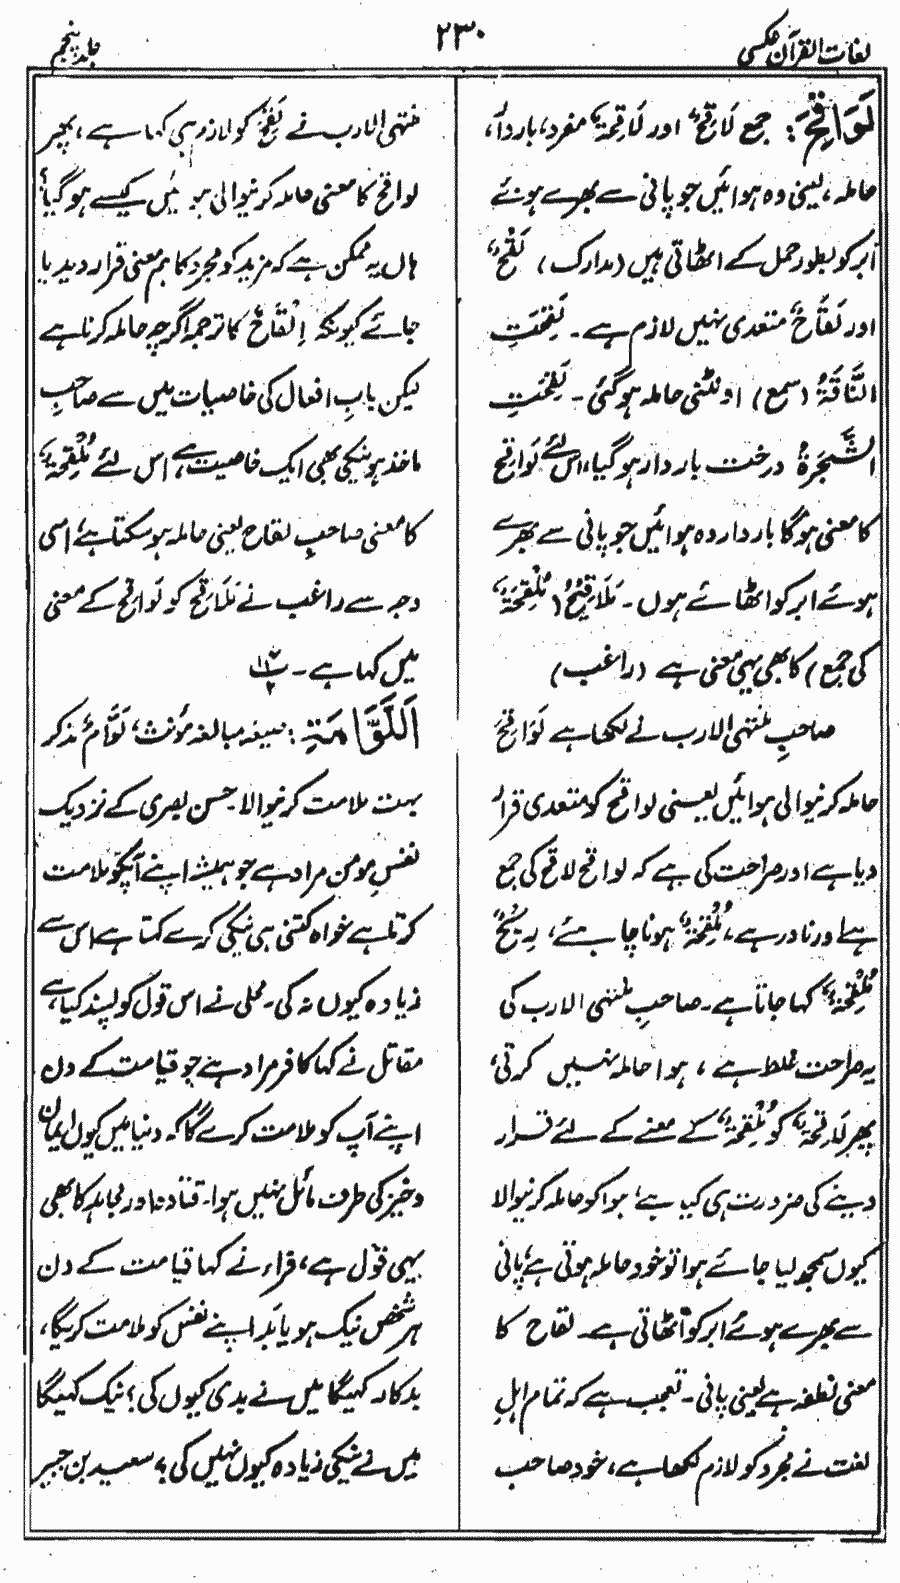 لغات القرآن عکسی
۲۳۰
جلد پنجم
لَوَاقِحَ: جمع لَاقِحٌ اور لَاقِحَةٌ مفرد، باردار،
حاملہ، یعنی وہ ہوائیں جو پانی سے بھرے ہوئے
ابر کو بطور حمل کے اٹھاتی ہیں (مدارک) لَقْحٌ
اور لَقَاحٌ متعدی نہیں لازم ہے۔ لَقِحَتِ
النَّاقَةُ (سمع) اونٹنی حاملہ ہوگئی۔ لَقِحَتِ
الشَّجَرَةُ درخت باردار ہوگیا، اس لئے لَوَاقِح
کا معنی ہوگا باردار وہ ہوائیں جو پانی سے بھرے
ہوئے ابر کو اٹھائے ہوں۔ مَلَاقِيْحُ (مُلْقِحَةٌ
کی جمع) کا بھی یہی معنی ہے (راغب)
صاحبِ منتہی الارب نے لکھا ہے لَوَاقِحَ
حاملہ کرنیوالی ہوائیں یعنی لواقح کو متعدی قرار
دیا ہے اور صراحت کی ہے کہ لواقح لاقح کی جمع
ہے اور نادر ہے، مُلْقِحَةٌ ہونا چاہئے، رِيْحٌ
مُلْقِحَةٌ کہا جاتا ہے۔ صاحبِ منتہی الارب کی
یہ صراحت غلط ہے، ہوا حاملہ نہیں کرتی،
پھر لَاقِحَةٌ کو مُلْقِحَةٌ کے معنے کے لئے قرار
دینے کی ضرورت ہی کیا ہے، ہوا کو حاملہ کرنیوالا
کیوں سمجھ لیا جائے ہوا تو خود حاملہ ہوتی ہے، پانی
سے بھرے ہوئے ابر کو اٹھاتی ہے۔ لقاح کا
معنی نطفہ ہے یعنی پانی۔ تعجب ہے کہ تمام اہلِ
لغت نے مجرد کو لازم لکھا ہے، خود صاحب
منتہی الارب نے لَقِحَ کو لازم ہی کہا ہے، پھر
لواقح کا معنی حاملہ کرنیوالی ہوائیں کیسے ہوگیا؟
ہاں یہ ممکن ہے کہ مزید کو مجرد کا ہم معنی قرار دیدیا
جائے کیونکہ اِلْقَاحٌ کا ترجمہ اگرچہ حاملہ کرنا ہے
لیکن بابِ افعال کی خاصیات میں سے صاحبِ
ماخذ ہونیکی بھی ایک خاصیت ہے، اس لئے مُلْقِحَةٌ
کا معنی صاحبِ لقاح یعنی حاملہ ہوسکتا ہے، اسی
وجہ سے راغب نے مَلَاقِح کو لَوَاقِح کے معنی
میں کہا ہے۔
اَللَّوَّامَةِ: صیغہ مبالغہ مؤنث، لَوَّامٌ مذکر
بہت ملامت کرنیوالا حسن بصری کے نزدیک
نفسِ مومن مراد ہے جو ہمیشہ اپنے آپکو ملامت
کرتا ہے خواہ کتنی ہی نیکی کرے کہتا ہے اس سے
زیادہ کیوں نہ کی۔ محلی نے اس قول کو پسند کیا ہے،
مقاتل نے کہا کافر مراد ہے جو قیامت کے دن
اپنے آپ کو ملامت کرے گا کہ دنیا میں کیوں ایمان
و خیر کی طرف مائل نہیں ہوا۔ قتادہ اور مجاہد کا بھی
یہی قول ہے، فراء نے کہا قیامت کے دن
ہر شخص نیک ہو یا بد اپنے نفس کو ملامت کریگا،
بدکار کہیگا میں نے بدی کیوں کی؟ نیک کہیگا
میں نے نیکی زیادہ کیوں نہیں کی؟ سعید بن جبیر